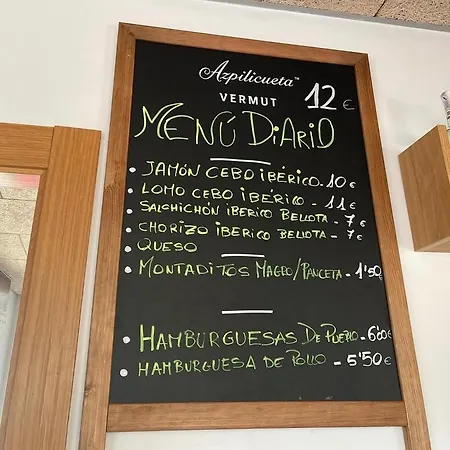 Azpilicueta™
VERMUT 12 €
MENÚ DIARIO
• JAMÓN CEBO IBÉRICO - 10 €
• LOMO CEBO IBÉRICO - 11 €
• SALCHICHÓN IBERICO BELLOTA - 7 €
• CHORIZO IBERICO BELLOTA - 7 €
• QUESO
• MONTADITOS MAGRO/PANCETA - 1'50 €
• HAMBURGUESAS DE PUEBLO - 6'00 €
• HAMBURGUESA DE POLLO - 5'50 €